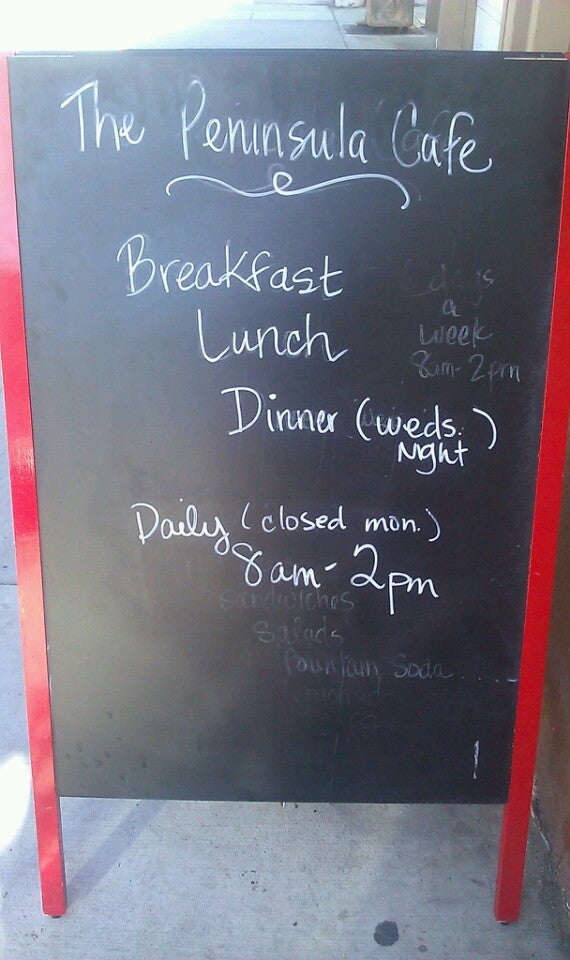 The Peninsula Cafe
Breakfast
Lunch
days
a
week
8am-2pm
Dinner (weds.
Night)
Daily (closed mon.)
8am-2pm
sandwiches
Salads
fountain Soda.....